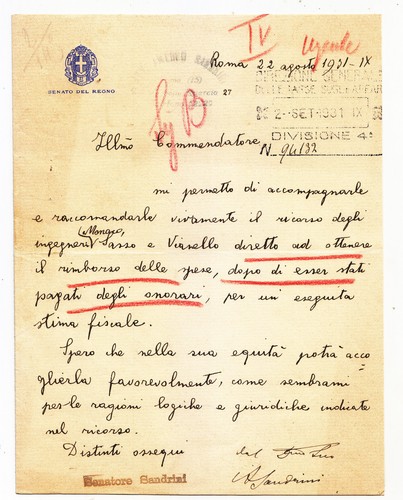 IV
Urgente
SENATO DEL REGNO
Roma 22 agosto 1931-IX
27
DIREZIONE GENERALE
DELLE TASSE SUGLI AFFARI
2-SET.1931 IX
DIVISIONE 4ª
N 94132
Illmo Commendatore,
mi permetto di accompagnarle
e raccomandarle vivamente il ricorso degli
ingegneri Mongeo, Sasso e Vianello diretto ad ottenere
il rimborso delle spese, dopo di esser stati
pagati degli onorari, per un eseguita
stima fiscale.
Spero che nella sua equità potrà acco
glierla favorevolmente, come sembrami
per le ragioni logiche e giuridiche indicate
nel ricorso.
Distinti ossequi
dal
Senatore Sandrini
A Sandrini